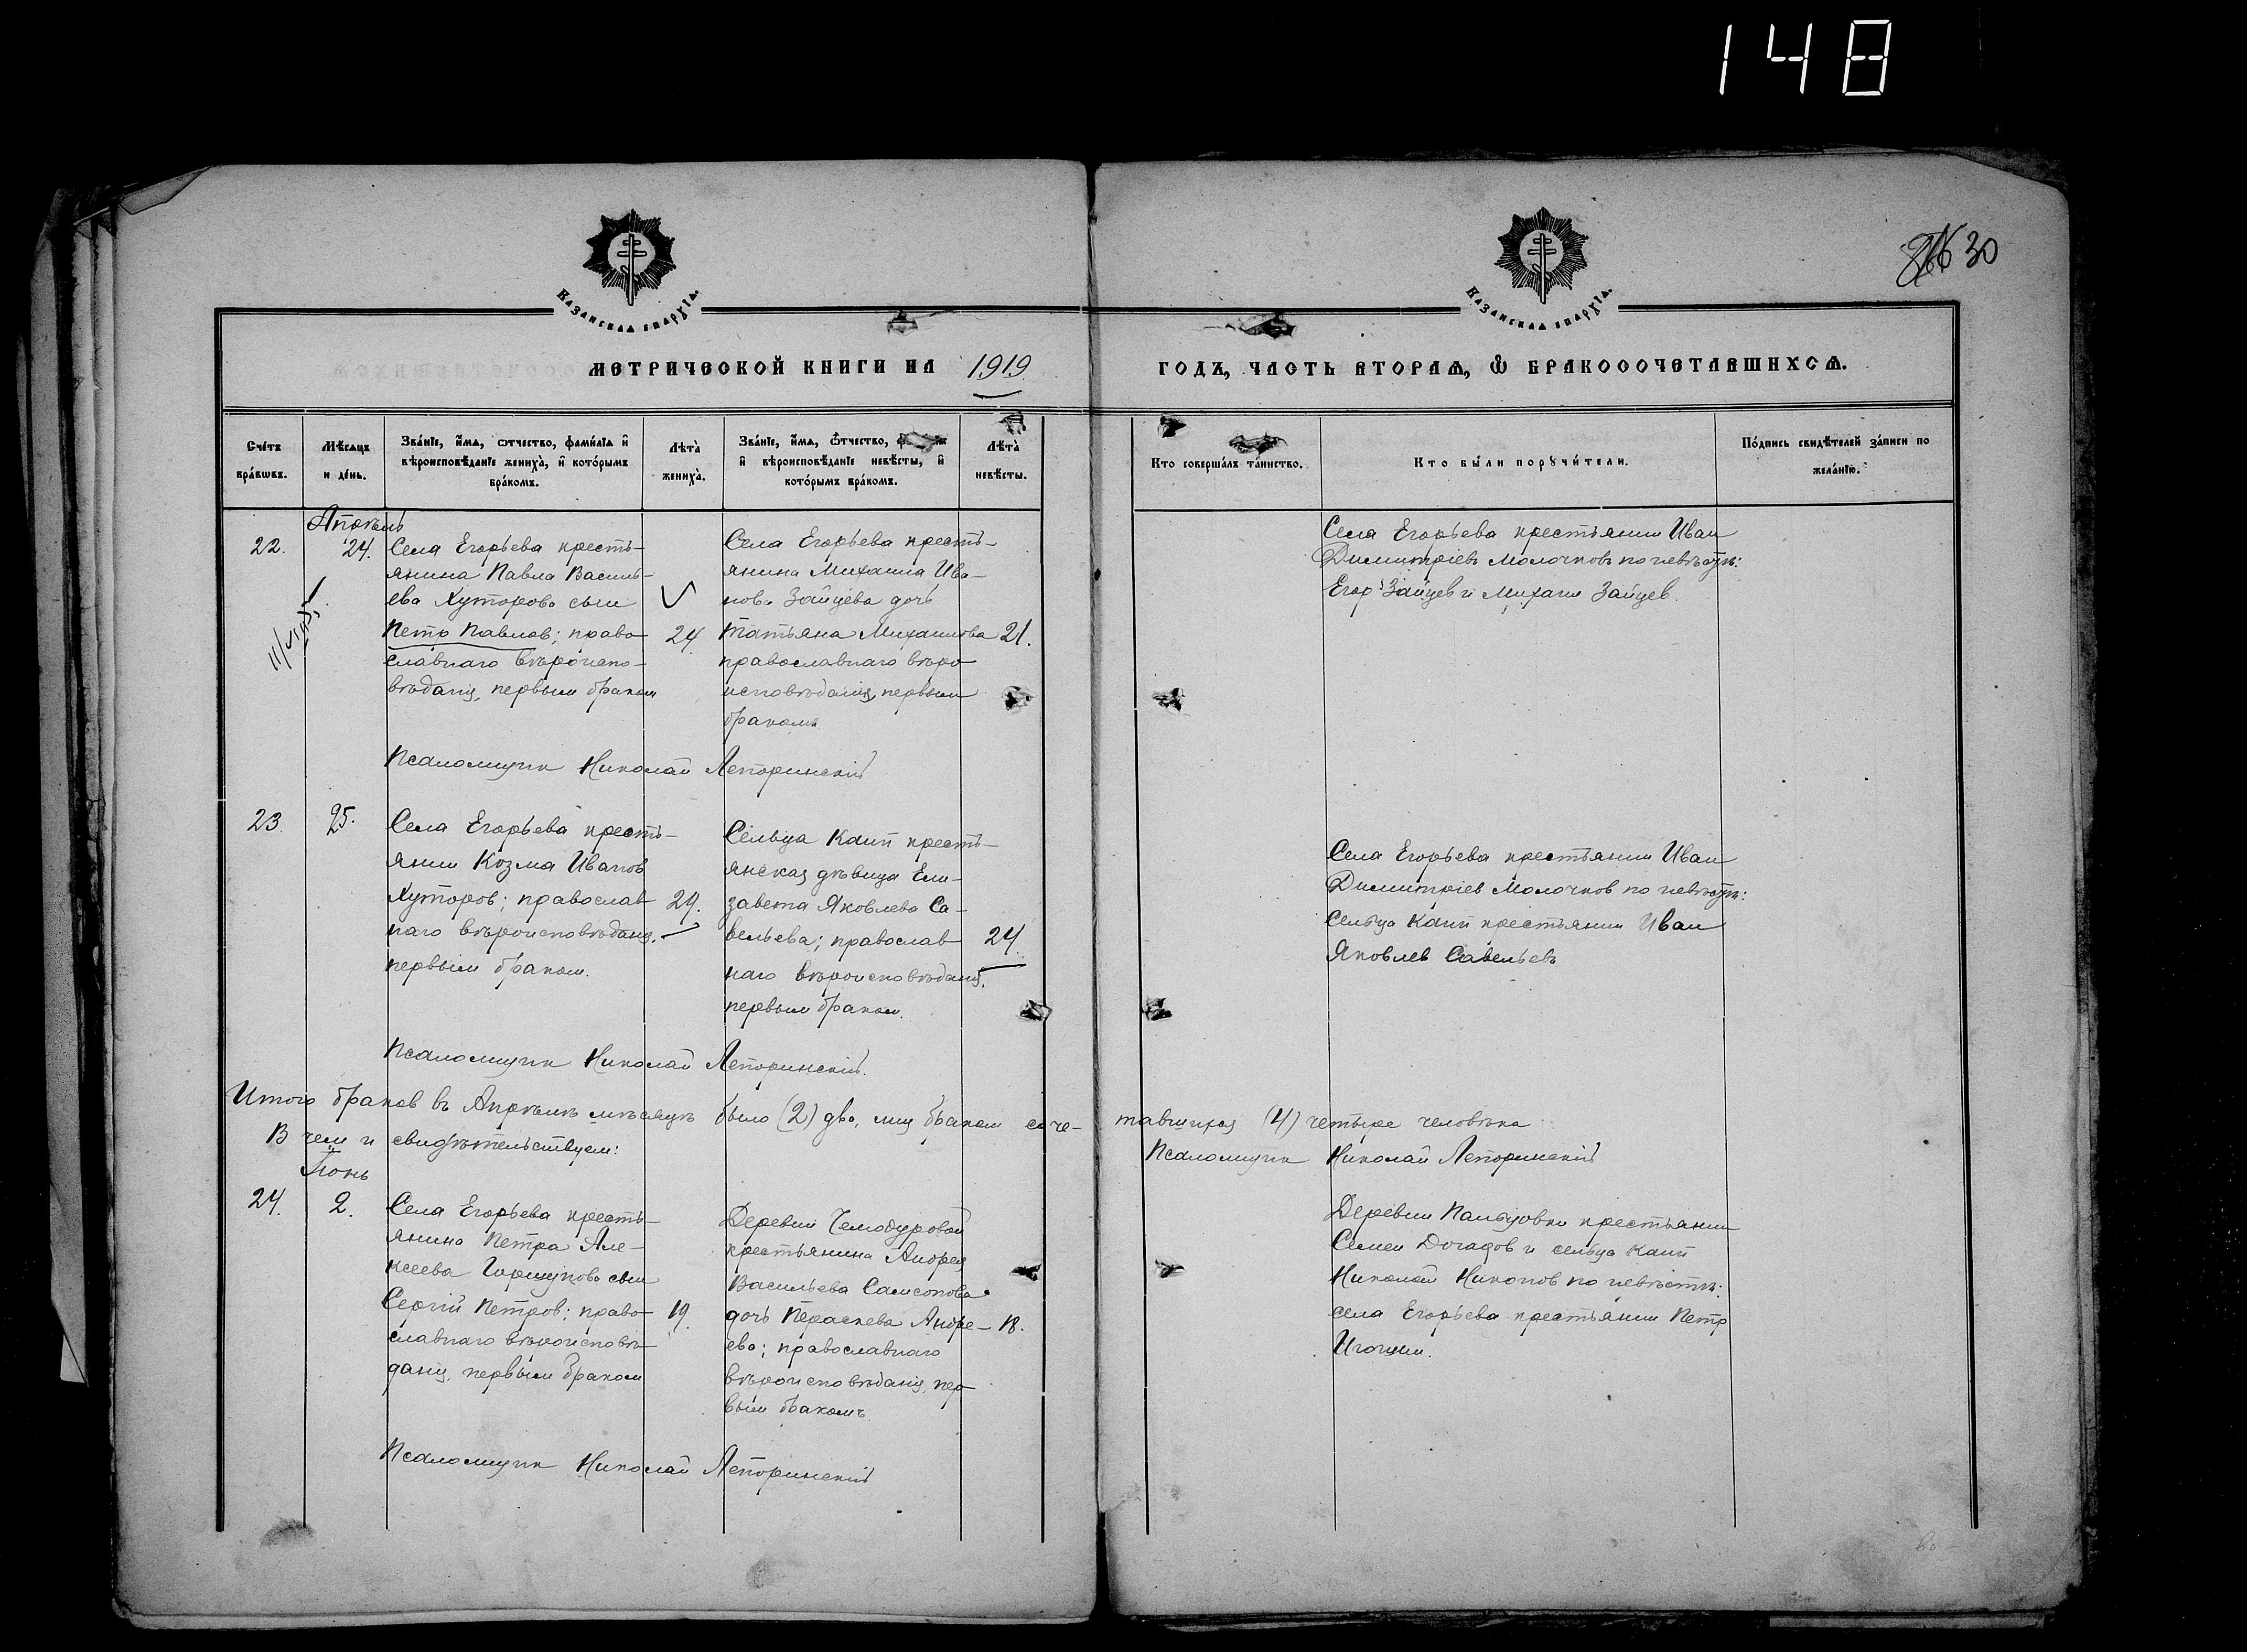 148
30
Казанская епархія.
Казанская епархія.
Метрической книги на 1919
годъ, часть вторая, ѡ бракосочетавшихся.
Счетъ браковъ.
Мѣсяцъ и день.
Званіе, имя, отчество, фамилія и вѣроисповѣданіе жениха, и которымъ бракомъ.
Лѣта жениха.
Званіе, имя, отчество, и вѣроисповѣданіе невѣсты, и которымъ бракомъ.
Лѣта невѣсты.
Кто совершалъ таинство.
Кто были поручители.
Подпись свидѣтелей записи по желанію.
Апрѣль
22.
24.
Села Егорьева кресть-
янина Павла Василь-
ева Хуторова сын
Петр Павлов; право-
славнаго вѣроиспо-
вѣданія, первым браком
24.
Села Егорьева кресть-
янина Михаила Ива-
нова Зайцева дочь
Татьяна Михаилова
православнаго вѣро-
исповѣданія, первым
бракомъ
21.
Села Егорьева крестьянин Иван
Димитріевъ Молочковъ по невѣстѣ:
Егор Зайцев и Михаил Зайцев.
Псаломщик Николай Лепоринскій
23.
25.
Села Егорьева кресть-
янин Козма Иванов
Хуторов; православ-
наго вѣроисповѣданія,
первым браком.
29.
Сельца Каип кресть-
янская дѣвица Ели-
завета Яковлева Са-
вельева; православ-
наго вѣроисповѣданія,
первым браком.
24.
Села Егорьева крестьянин Иван
Димитріев Молочков по невѣстѣ:
Сельца Каип крестьянин Иван
Яковлев Савельевъ
Псаломщик Николай Лепоринскій.
Итого браков въ Апрѣлѣ мѣсяцѣ было (2) два, лиц браком соче- тавшихся (4) четыре человѣка
В чем и свидѣтельствуем: Псаломщик Николай Лепоринскій
Іюнь
24.
2.
Села Егорьева кресть-
янина Петра Але-
ксеева Горшунова сын
Сергій Петров; право-
славнаго вѣроисповѣ-
данія, первым браком
19.
Деревни Чемодуровой
крестьянина Андрея
Васильева Самсонова
дочь Параскева Андре-
ева; православнаго
вѣроисповѣданія, пер-
вым бракомъ.
18.
Деревни Пальцовки крестьянин
Семен Догадов и сельца Каип
Николай Никонов по невѣстѣ:
села Егорьева крестьянин Петр
Игонин.
Псаломщик Николай Лепоринскій